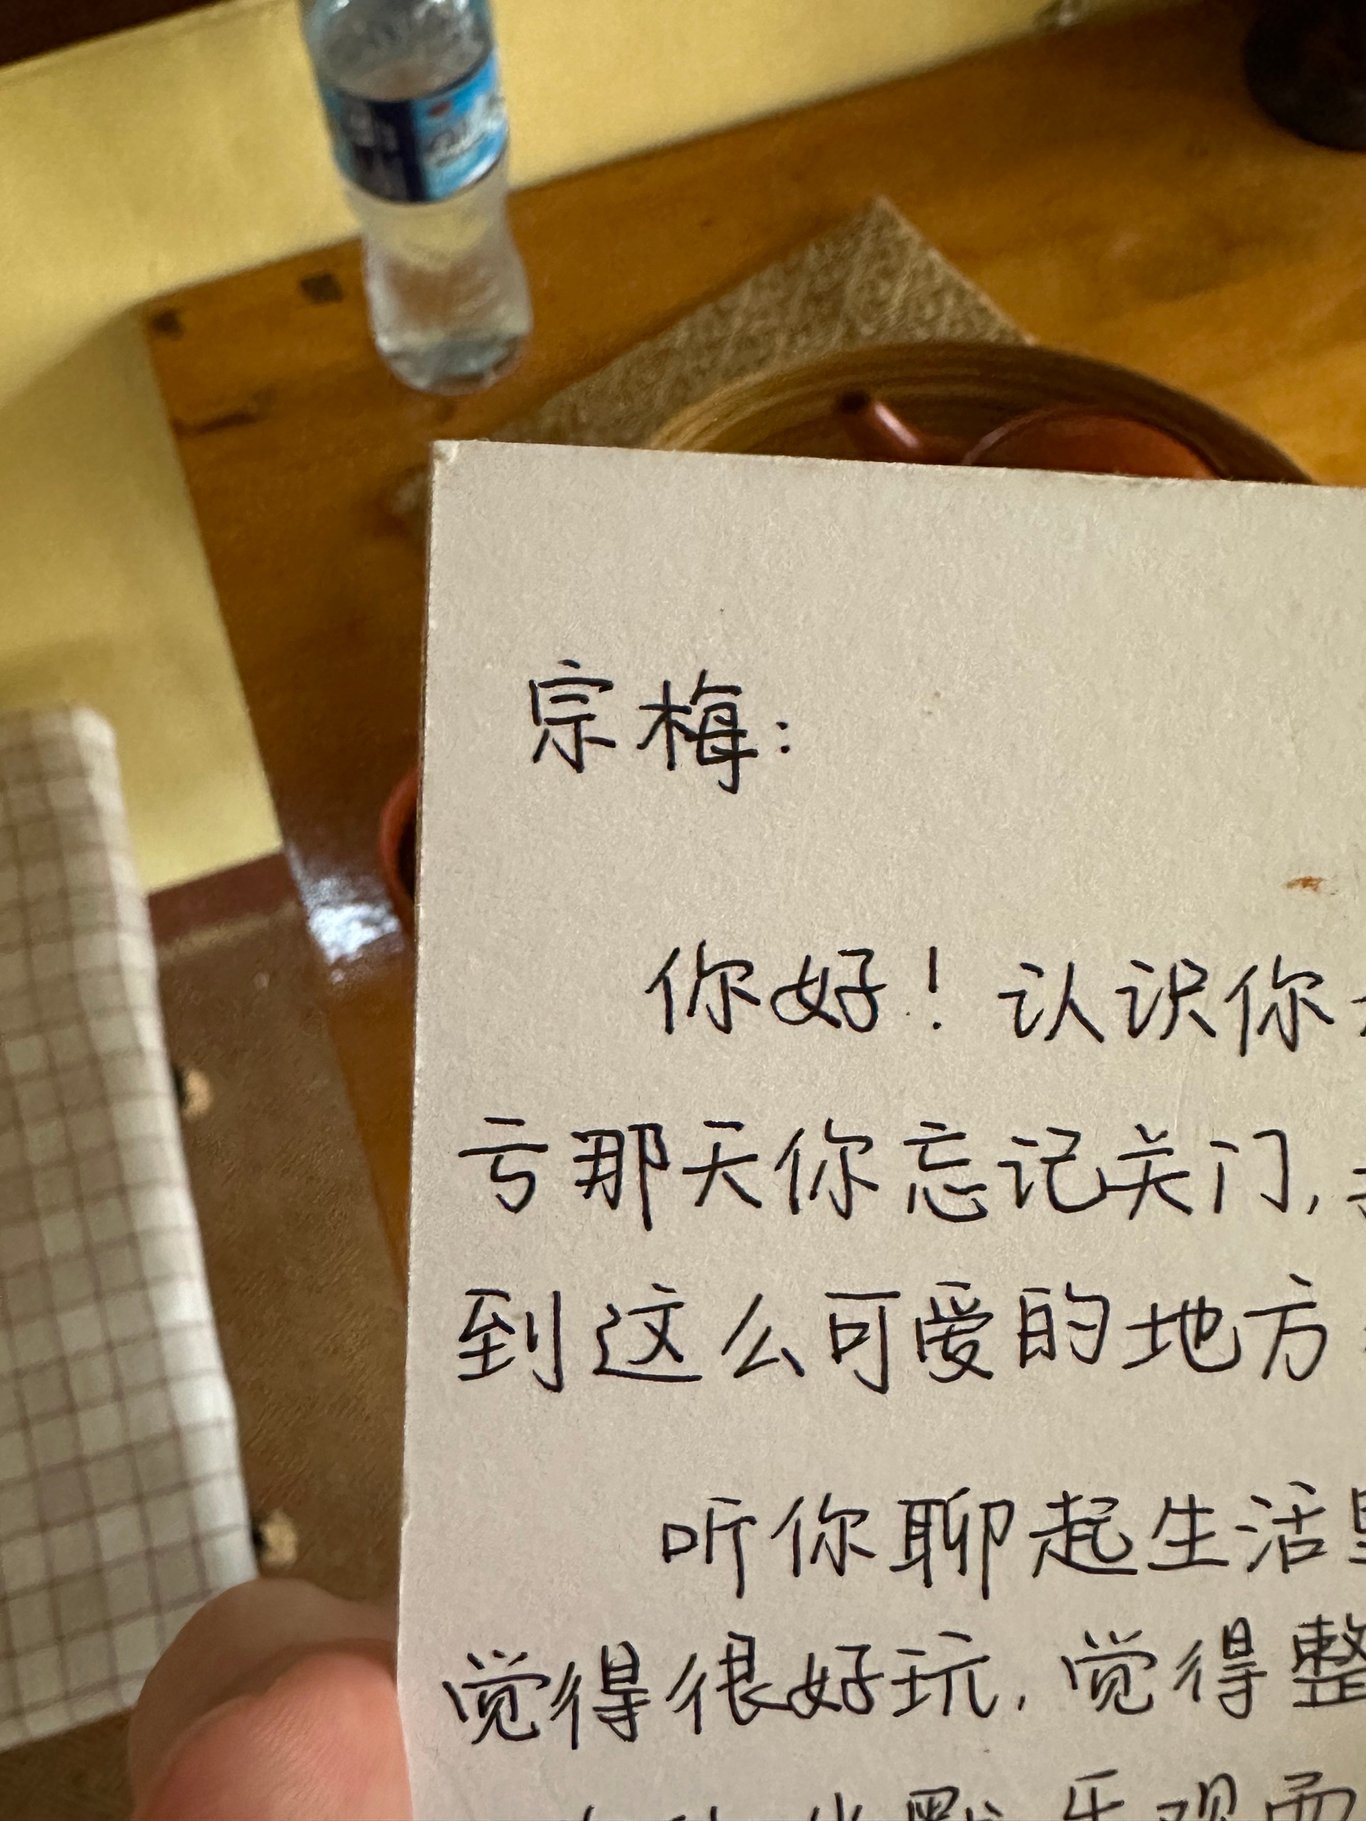 宗梅:
你好！认识你
亏那天你忘记关门,
到这么可爱的地方
听你聊起生活
觉得很好玩,觉得整